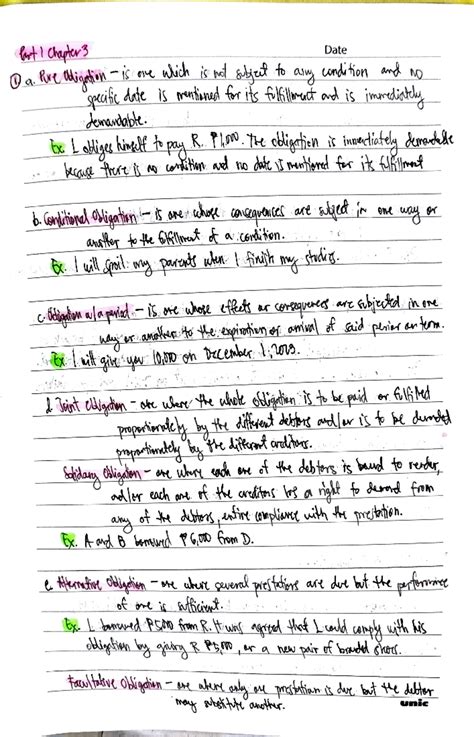 Part 1 Chapter 3
Date
① a. Pure Obligation – is one which is not subject to any condition and no
specific date is mentioned for its fulfillment and is immediately
demandable.
Ex. L obliges himself to pay R ₱1,000. The obligation is immediately demandable
because there is no condition and no date is mentioned for its fulfillment
b. Conditional Obligation – is one whose consequences are subject in one way or
another to the fulfillment of a condition.
Ex. I will spoil my parents when I finish my studies.
c. Obligation w/a period – is one whose effects or consequences are subjected in one
way or another to the expiration or arrival of said period or term.
Ex. I will give you 10,000 on December 1,
d. Joint Obligation – one where the whole obligation is to be paid or fulfilled
proportionately by the different debtors and/or is to be demanded
proportionately by the different creditors.
Solidary Obligation – one where each one of the debtors is bound to render,
and/or each one of the creditors has a right to demand from
any of the debtors, entire compliance with the prestation.
Ex. A and B borrowed ₱6,000 from D.
e. Alternative Obligation – one where several prestations are due but the performance
of one is sufficient.
Ex. L borrowed ₱5,000 from R. It was agreed that L could comply with his
obligation by giving R ₱5,000, or a new pair of branded shoes.
Facultative Obligation – one where only one prestation is due but the debtor
may substitute another.
unic